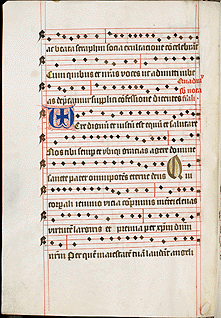 ac beata seraphin socia exultacione concelebrant
Cum quibus et nr̄as voces ut admitti iubeas
deprecamur supplici cōfessione dicentes
Uere dignū et iustū est equū et salutare
Nos tibi semper et ubiqȝ gracias agere domine
sancte pater omnipotens eterne deus Qui
corporali ieiunio vicia cōprimis mentē elevas
virtutē largiris et premia per xpm dnm
nostrū Per quē maiestatē tuā laudāt angeli